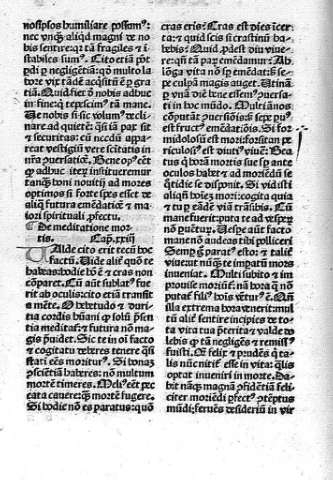 nosipsos humiliare possum9:
nec vnq̃ aliqd magni de no
bis sentire: qr tã fragiles & i
stabiles sum9. Cito etiã põt
ꝑdi ꝑ negligẽtiã: qð multo la
bore vix tãdẽ ẽ ꝑ grã
tiã. Quid fiet ĩ nobis adhuc
in fine: q tepescim9 tã mane.
Ue nobis si sic volum9 recli
nare ad quietẽ: q̃si iã pax sit
& securitas: cũ necdũ appa
reat vestigiũ vere scĩtatis in
nr̃a cõuersatiõe. Bene op9 eẽt
ꝙ adhuc iteꝝ institueremur
tanq̃ boni nouitij ad mores
optimos si forte spes esset de
aliq̃ futura emẽdatiõe &̃ ma
iori spirituali ꝓfectu.
De meditatione mor
tis. Cap. xxiij
Ualde cito erit tecũ hoc
factũ. Uide aliẽ quõ te
habeas: hodie hõ ẽ & cras non
cõparet. Cũ aũt sublat9 fue
rit ab oculis: etiã cito trãsit
a mẽte. O hebetudo & du
ritia cordis hũani ꝙ solũ p̃sen
tia meditaf: & futura nõ ma
gis p̃uidet. Sic te in oi facto
& cogitatu deberes tenere q̃si
statĩ eẽs moritur9. Si bonam
ꝯsciẽtiã haberes: nõ multum
mortẽ timeres. Meli9 eẽt pec
cata cauere: q̃ mortẽ fugere.
Si hodie nõ es paratus: quõ
cras eris? Cras est dies ĩcer
ta: & quid scis si crastinũ ha
bebis? Quid ꝓdest diu viue
re: qñ tã paꝝ emẽdamur? Ah
lõga vita nõ sp emẽdat: sȝ se
pe culpã magis auget. Utinã
ꝑ vnã diẽ bene essem9 ꝯuersa
ti in hoc mũdo. Multi ãnos
cõputãt ꝯuersiõis: sȝ sepe ꝑu9
est fruct9 emẽdatiõis. Si for
midolosũ est mori: forsitan ꝑi
culosi9 est diuti9 viuẽ. Bea
tus ꝗ horã mortis sue sp ante
oculos habet & ad moriẽdũ se
q̃ttidie se disponit. Si vidisti
aliqñ hoiẽȝ mori: cogita quia
& tu ꝑ eãdẽ viã trãsibis. Cũ
mane fuerit: puta te ad vesperȝ
nõ ꝑuẽtur9. Uespe aũt facto
mane nõ audeas tibi polliceri
Semꝑ ergo parat9 esto: & talit̃
viue vt nũq̃ te imparatũ mors
inueniat. Multi subito & im
prouise moriũt̃: nã hora q̃ nõ
putat̃ fili9 hois vẽtur9 ẽ. Qñ
illa extrema hora venerit: mul
tũ alit̃ sentire incipies de to
ta vita tua p̃terita: & valde do
lebis ꝙ tã negligẽs & remiss9
fuisti. Q̃ felix & prudẽs ꝗ ta
lis nũc nitit̃ esse in vita: q̃lis
optat inueniri in morte. Da
bit nãq̃ magnã ꝯfidẽtiã feli
citer moriẽdi ꝑfect9 ꝯtẽptus
mũdi: feruẽs desideriũ in vir